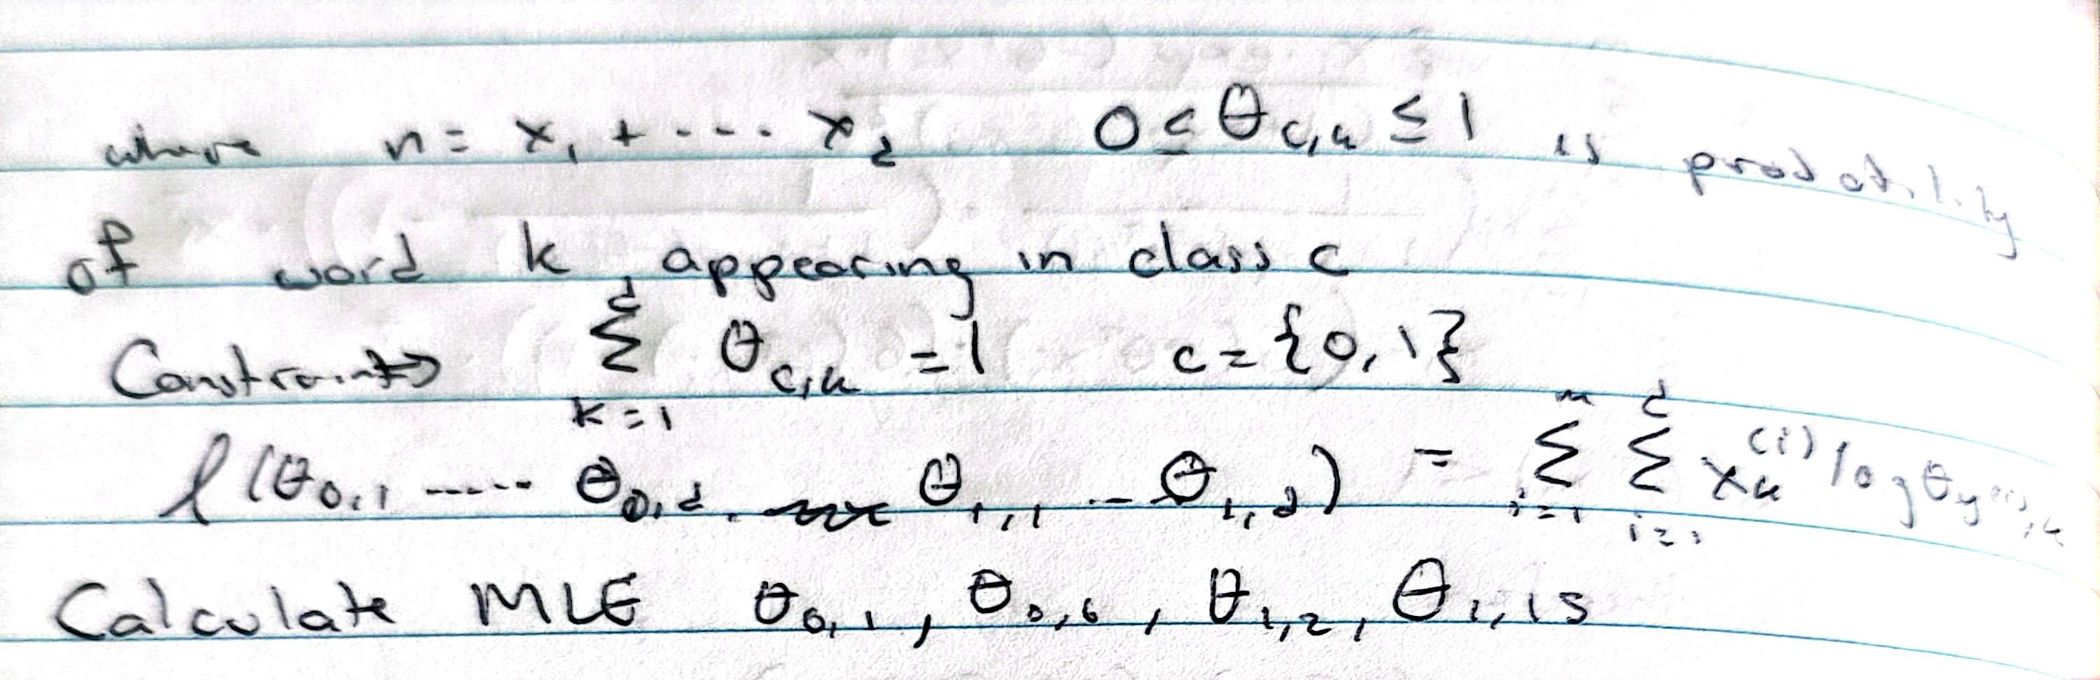 where n = x₁ + ---. x_d 0 ≤ θ_{c,k} ≤ 1 is probability
of word k appearing in class c
Constraints \sum_{k=1}^{d} θ_{c,k} = 1 c = {0, 1}
l(θ_{0,1} ------ θ_{0,d}, θ_{1,1} -- θ_{1,d}) = \sum_{i=1}^{n} \sum_{i=1}^{d} x_k^{(i)} log θ_{y^{(i)},k}
Calculate MLE θ_{0,1}, θ_{0,6}, θ_{1,2}, θ_{1,15}